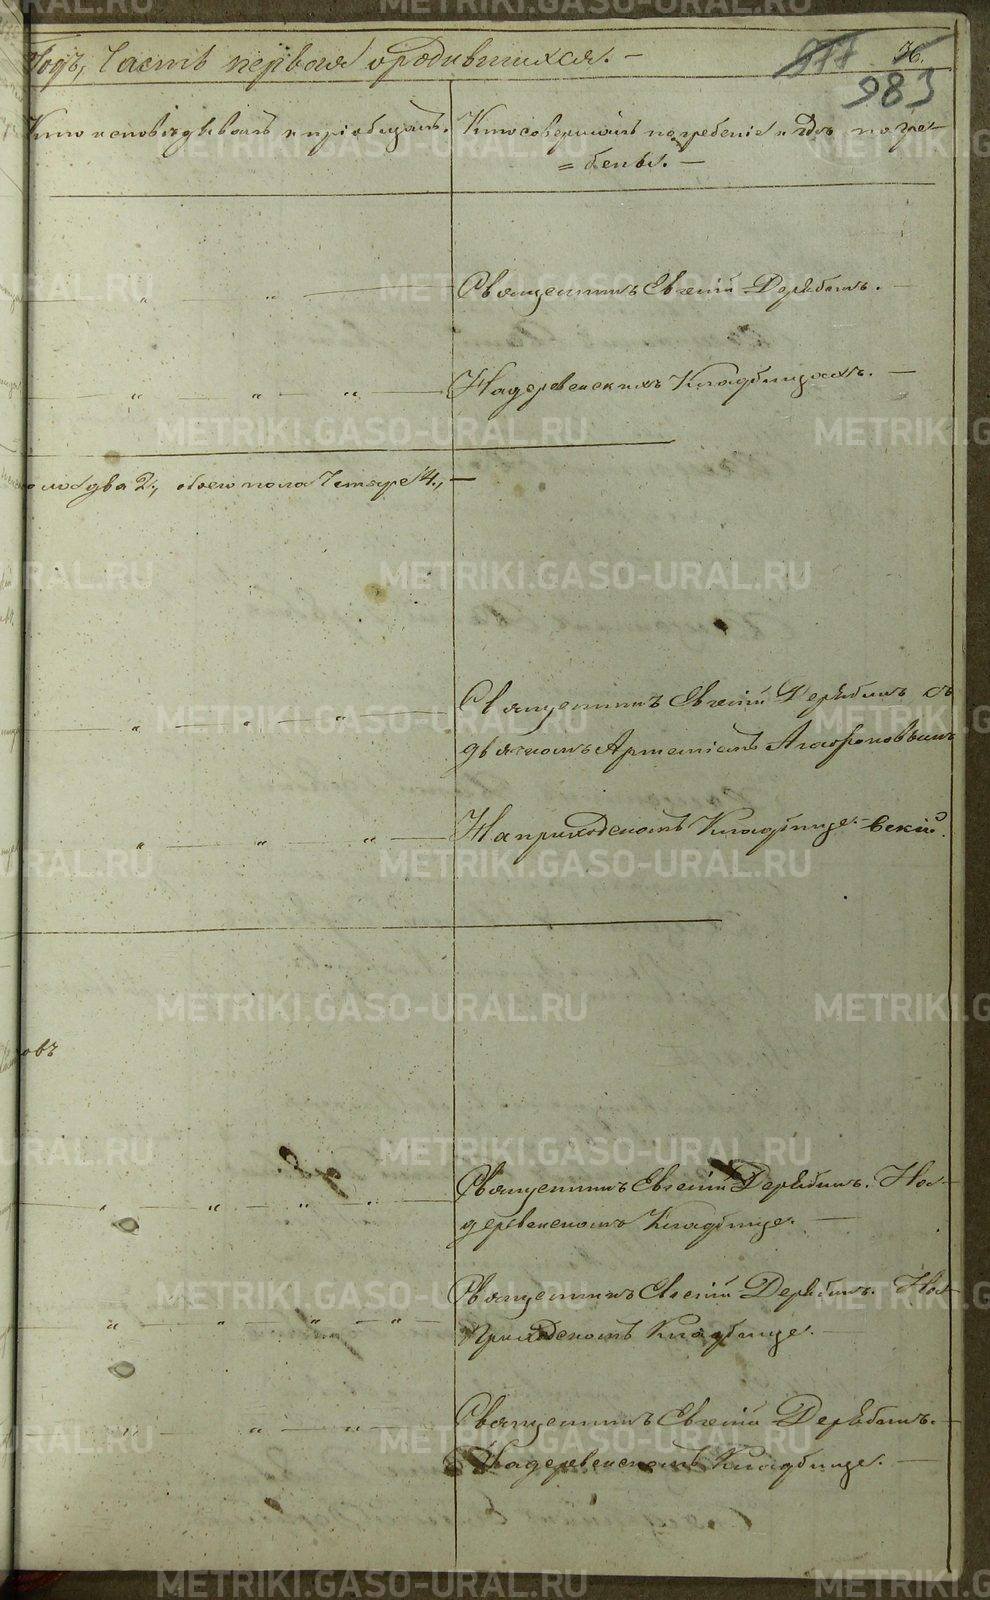 Годъ, Часть первая о родившихся. —
977 76.
983
Кто исповѣдывалъ и пріобщалъ.
Кто совершалъ погребеніе и гдѣ погре-
= бены. —
Священникъ Евгеній Дерябинъ. —
На деревенскихъ Кладбищахъ. —
два 2, обоего пола Четыре 4, —
Священникъ Евгеній Дерябинъ съ
дьячкомъ Агафоновымъ
На приходскомъ Кладбище. —
овъ
Священникъ Евгеній Дерябинъ. На
деревенскомъ Кладбище. —
Священникъ Евгеній Дерябинъ. На
Приходскомъ Кладбище. —
Священникъ Евгеній Дерябинъ. —
На деревенскомъ Кладбище. —
METRIKI.GASO-URAL.RU